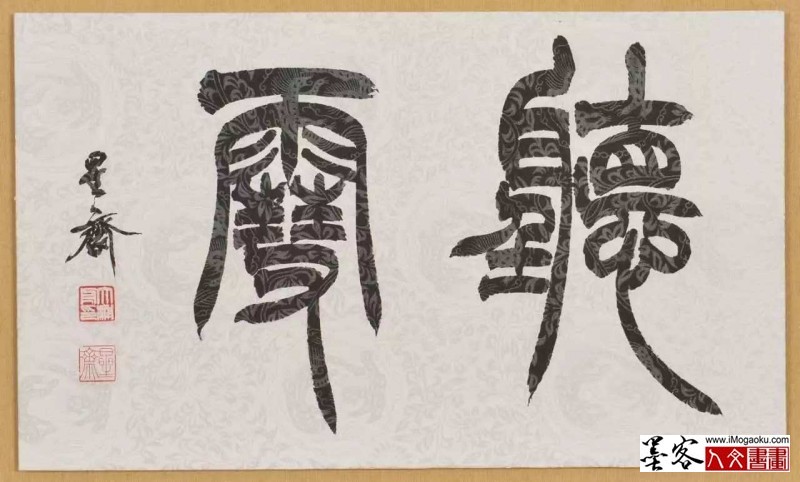 聽雪
星齋
墨客
www.iMogaoku.com
人文書畫